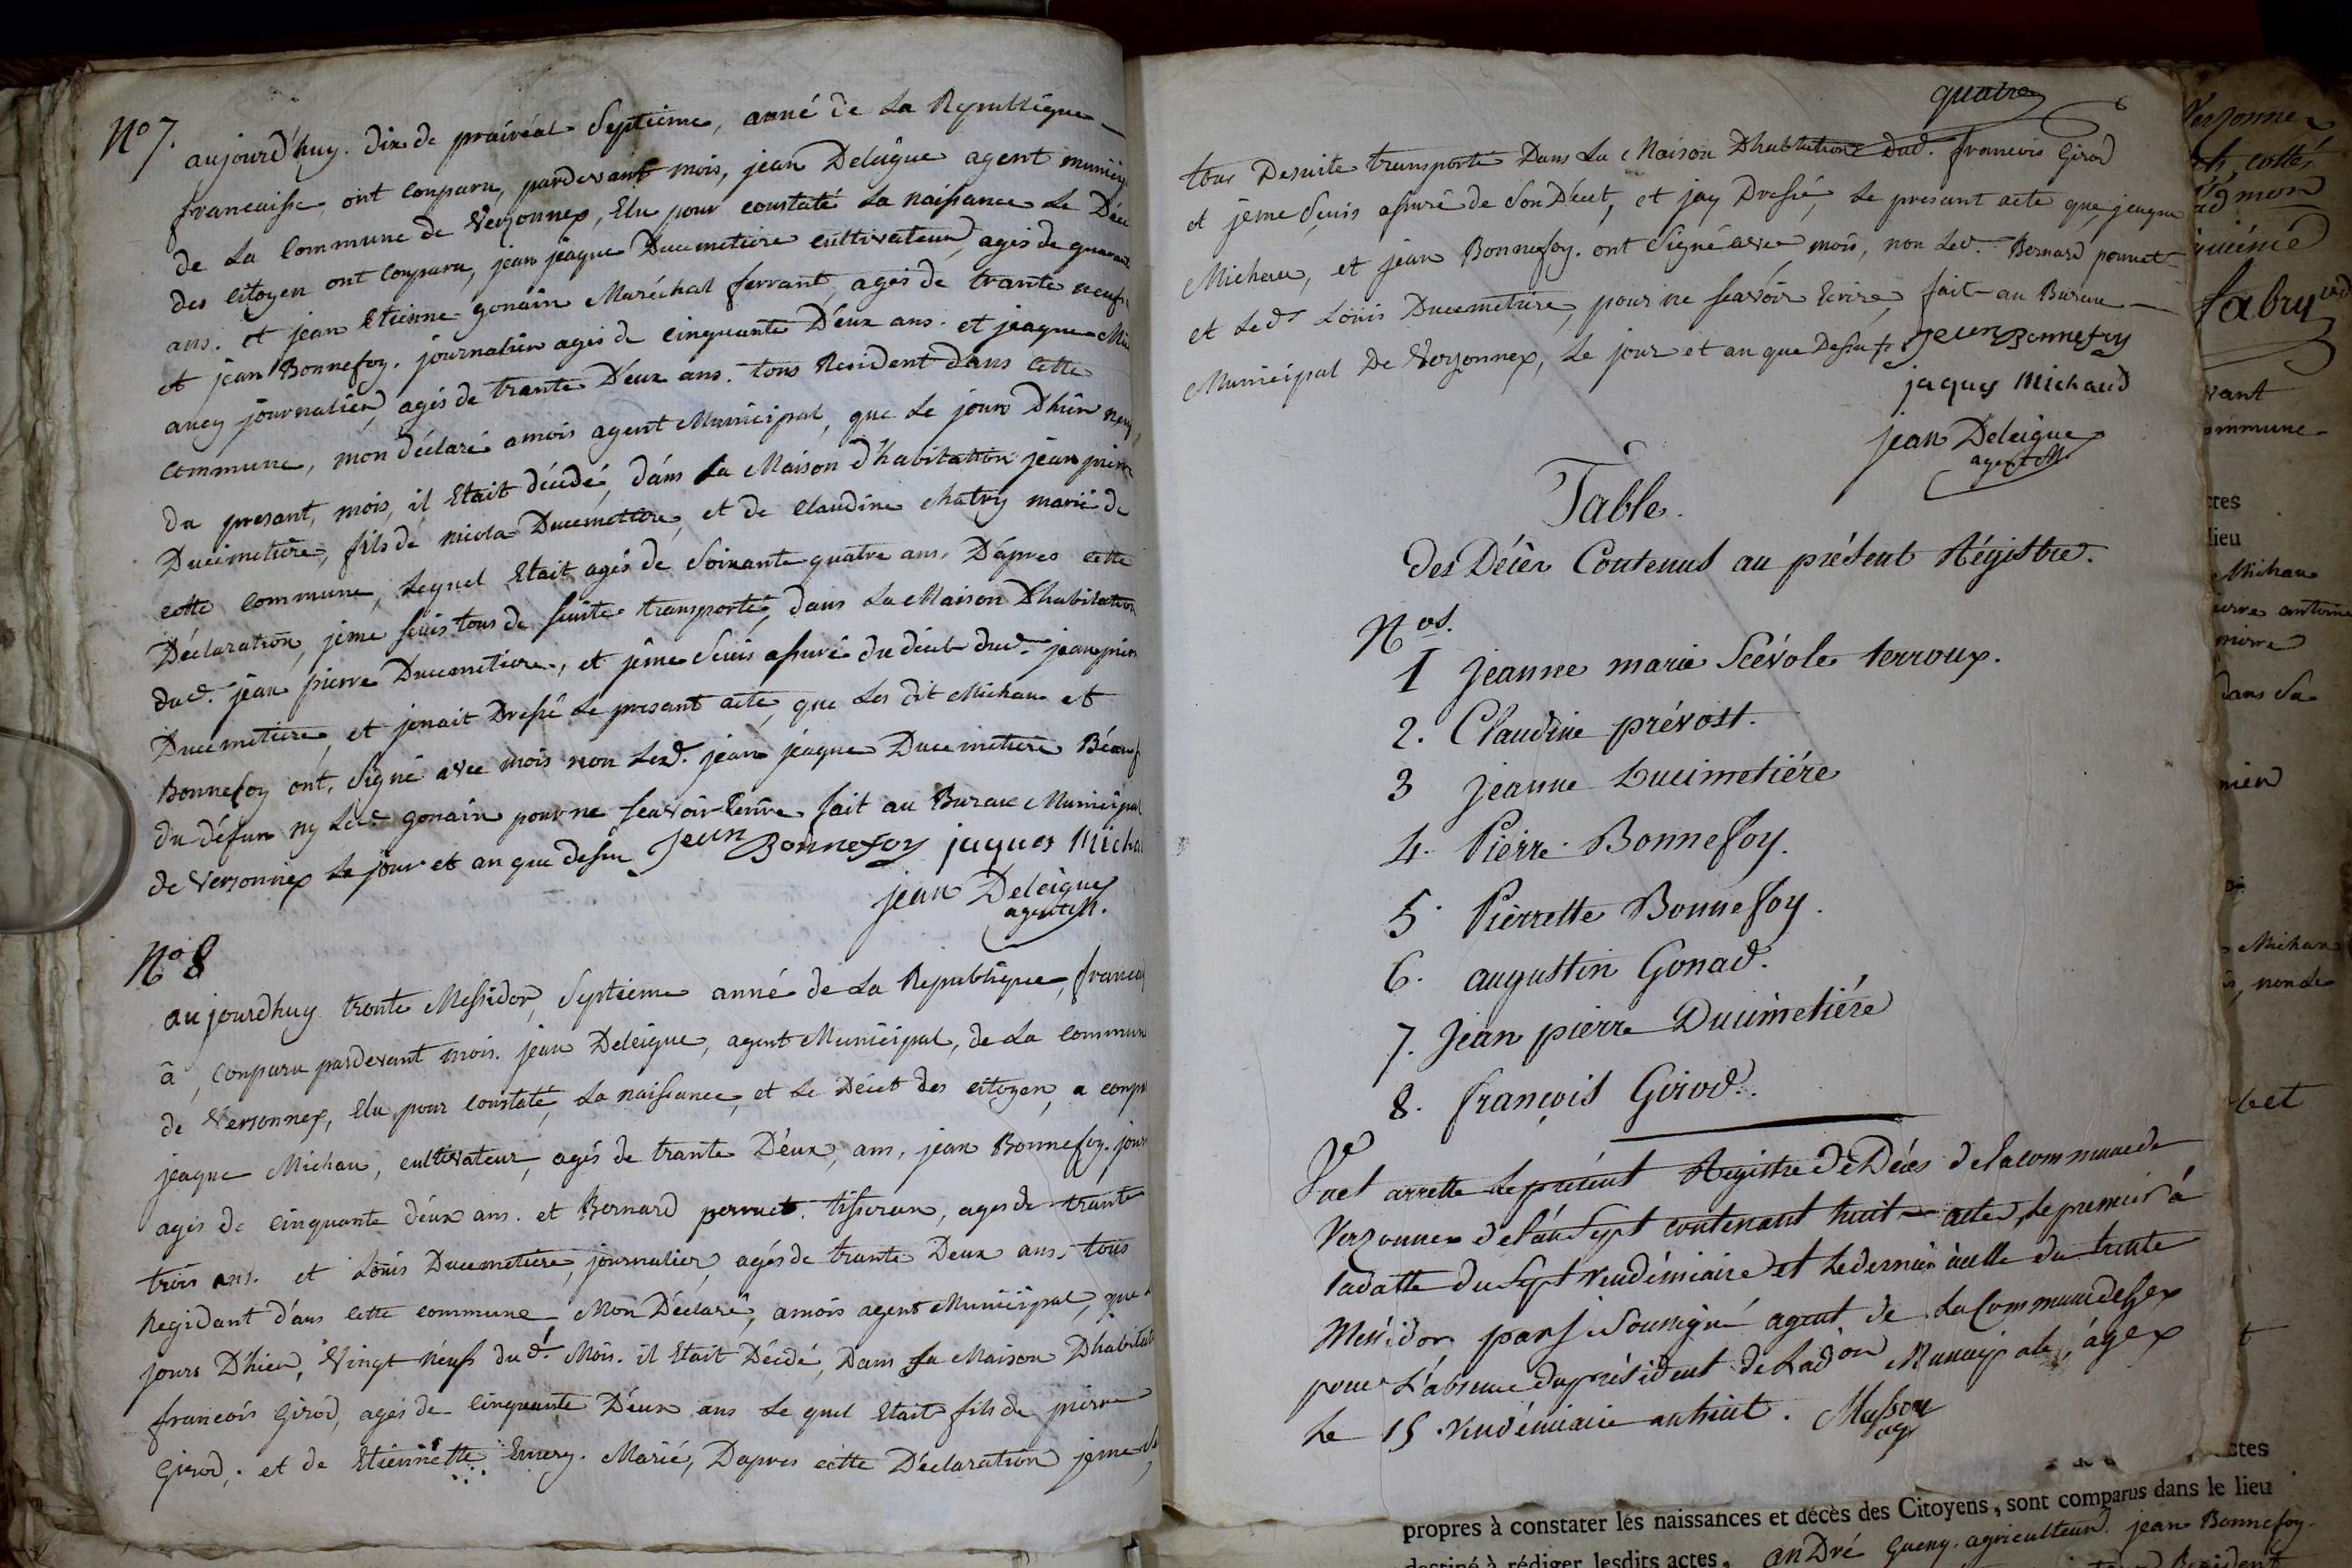 N.o 7.
aujourd'huy. dix de prairéal Septieme, anné de La Republique
francaisse, ont conparu, pardevant mois, jean Deleigue agent municip
de La Commune de Versonnex, Elu pour constaté La naissance Le Déce
des citoyen ont conparu, jean jeaque Ducemetiere cultivateur, agés de quarant
ans. et jean Etienne gonain Maréchal ferrant, agés de trante neuf
et jean Bonnefoy. journalier agés de cinquante D'eux ans. et jeaque Mi
aney journalier, agés de trante D'eux ans. tous Resident dans cette
Commune, mon déclaré amois agent Municipal, que Le jour D'hier neuf
du presant, mois, il Etait décédé, dans La Maison d'habitation jean pierre
Ducimetiere, fils de nicola Ducemetiere, et de Claudine Matry marié de
cette Commune, Lequel Etait agés de Soixante quatre ans, D'apres cette
Déclaration, jeme suis tous de suite transporté, dans La Maison D'habitation
dud. jean pierre Ducemetiere, et jême Suis assuré du déceb dud. jean pierre
Ducemetiere, et jenait Dressé Le presant acte, que Les dit Michau et
Bonnefoy ont, Signé avec mois non Led. jean jeaque Ducemetiere Beauf
du défun ny Led. gonain pour ne scavoir Ecrire fait au Bureau Municipal
de Versonnex Le jour et an que dessu Jean Bonnefoy jaques Micha
jean Deleigue
agent M.
N.o 8
aujourdhuy trante Messidor, Septieme anné de La Republique, francai
â, conparu pardevant mois. jean Deleigue, agent Municipal, de La commun
de Versonnex, Elu pour constaté, La naissance, et Le Décet des citoyen, a conpa
jeaque Michau, cultivateur, agés de trante D'eux, ans, jean Bonnefoy. jour
agés de cinquante d'eux ans. et Bernard pernet. tisseran, ages de trante
trois ans. et Louis Ducemetiere, journalier, agés de trante Deux ans, tous
Regidant dans cette commune, Mon Déclaré, amois agent Municipal, que
jours D'hier, Vingt neufs dud. Mois. il Etait Décédé, Dans sa Maison D'habitat
francois Girod, agés de cinquante D'eux ans Le quel Etait fils de pierre
Girod, et de Etiennette Emery. Marié, Dapres cette Déclaration jeme
quatre
tous Desuite transporté Dans La Maison D'habitation Dud. francois Girod
et jême Suis assuré de Son Décet, et jay Dressé, Le presant acte que jeaque
Michau, et jean Bonnefoy. ont Signé avec mois, non Led. Bernard pernet
et Led. Louis Ducemetiere, pour ne scavoir Ecrire, fait au Bureau
Municipal De Versonnex, Le jour et an que Dessu Jean Bonnefoy
jaques Michaud
jean Deleigue
agent M.
Table.
des Décès Contenus au présent Régistre.
N.os
1 Jeanne marie Scévole terroux.
2. Claudine prévost.
3 Jeanne Ducimetiére
4. Pierre Bonnefoy.
5. Pierrette Bonnefoy.
6. augustin Gonad.
7. Jean pierre Ducimetiére
8. françois Girod.
Vu et arretté le présent Registre de Décès de la commune de
Versonnex de l'an Sept contenant huit actes, le premier à
la datte du Sept Vendémiaire et le dernier à celle du trente
Messidor, par je Soussigné agent de La Commune de Gex
pour L'absence du président de L'ad.on Municipale, à gex
Le 15 Vendémiaire an huit. Masson
agt
Versonnex
cottés
fabry
vant
commune
ctes
lieu
Michau
pierre antoine
dans Sa
Michau
, non Le
ctes
propres à constater les naissances et décès des Citoyens, sont comparus dans le lieu
destiné à rédiger lesdits actes, anDré Gueny. agriculteur. jean Bonnefoy.